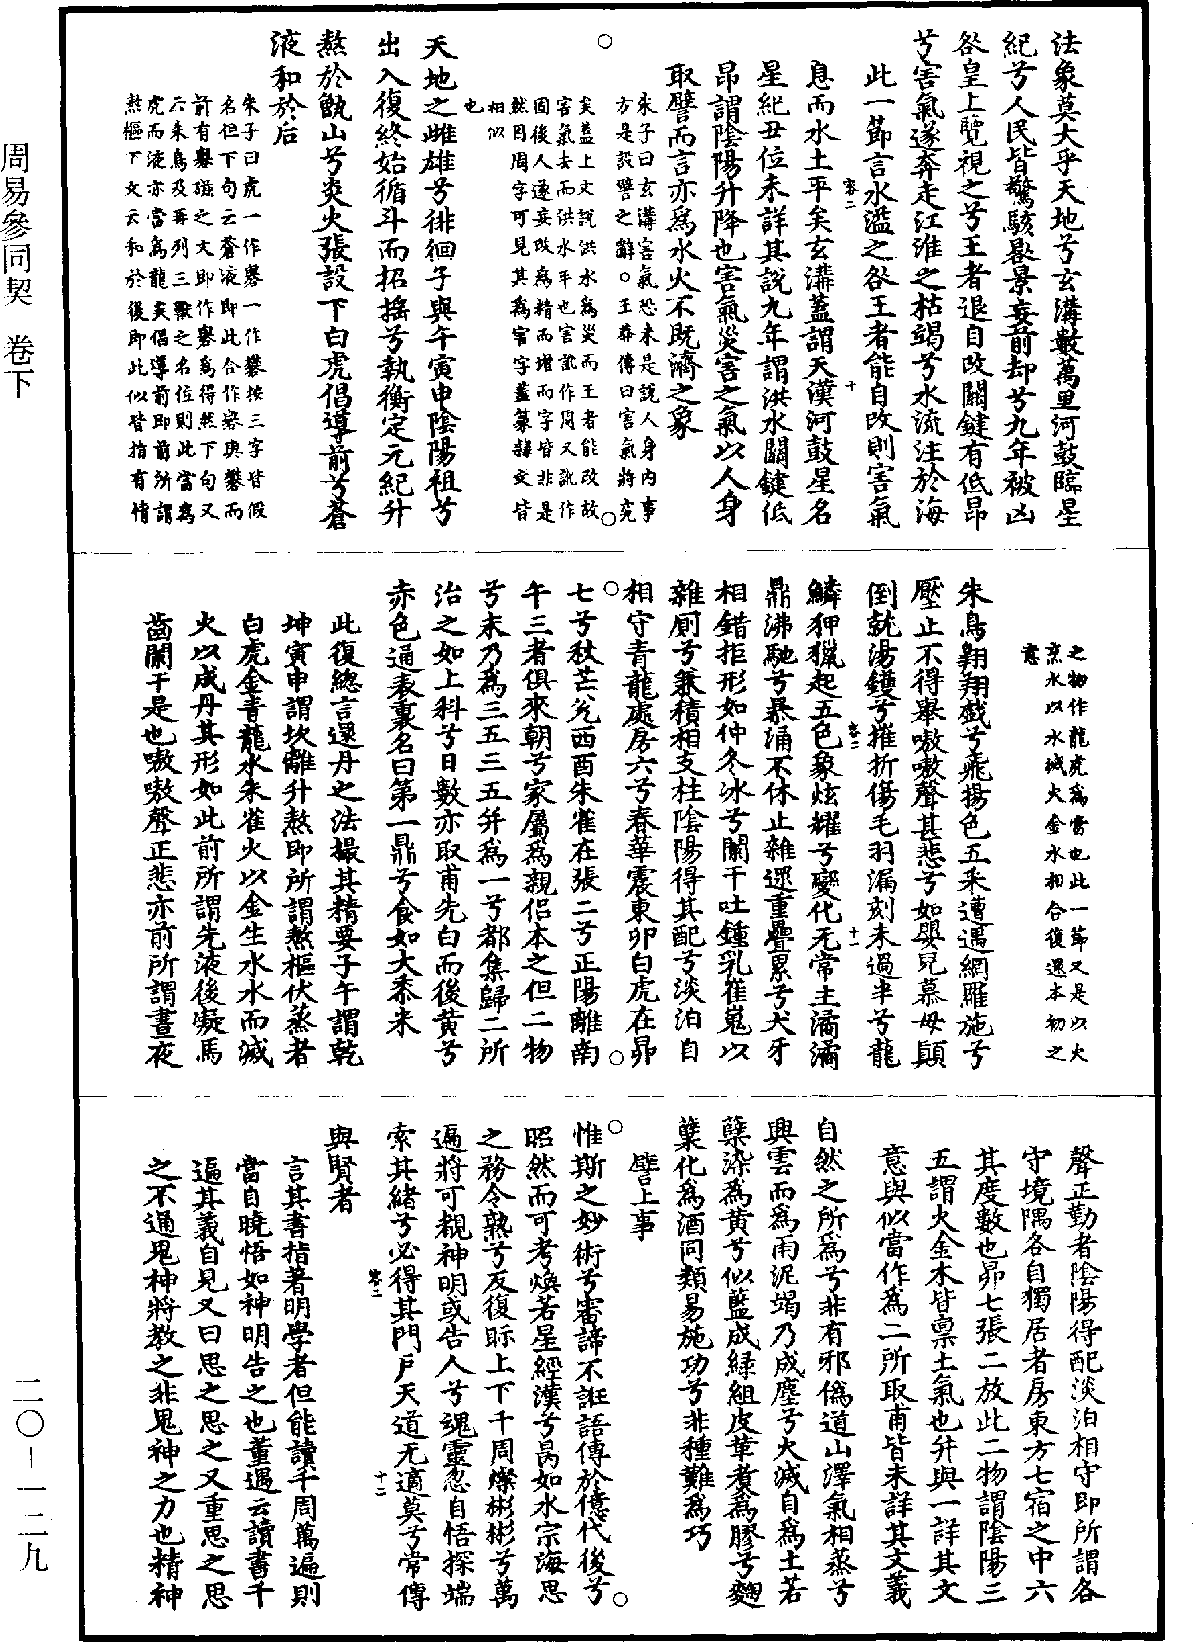 法象莫大乎天地兮玄溝數萬里河鼓臨星
紀兮人民皆驚駭晷景妄前却兮九年被凶
咎皇上覽視之兮王者退自改關鍵有低昂
兮害氣遂奔走江淮之枯竭兮水流注於海
此一節言水溢之咎王者能自改則害氣
卷二
十
息而水土平矣玄溝蓋謂天漢河鼓星名
星紀丑位未詳其說九年謂洪水關鍵低
昂謂陰陽升降也害氣災害之氣以人身
取譬而言亦為水火不既濟之象
朱子曰玄溝害氣恐未是說人身內事
方是設譬之辭○王莽傳曰害氣將究
矣蓋上文說洪水為災而王者能改故
害氣去而洪水平也害訛作周又訛作
固後人遂妄改為精而增而字皆非是
然因周字可見其為害字蓋篆隸文皆
相似
也
天地之雌雄兮徘徊子與午寅申陰陽祖兮
出入復終始循斗而招搖兮執衡定元紀升
熬於甑山兮炎火張設下白虎倡導前兮蒼
液和於后
朱子曰虎一作礬一作礬按三字皆假
名但下句云蒼液即此合作液與礬而
前有礬磁之文即作礬為得然下句又
六朱鳥及再列三獸之名位則此當為
虎而液亦當為龍矣倡導前即前所謂
熬樞下文云和於後即此似皆指有情
之物作龍虎為當也此一節又是以火
烹水以水滅火金水相合復還本初之
意
朱鳥翱翔戲兮飛揚色五采遭遇網羅施兮
壓止不得舉嗷嗷聲甚悲兮如嬰兒慕母顛
倒就湯鑊兮摧折傷毛羽漏刻未過半兮龍
卷二
十一
鱗狎獵起五色象炫耀兮變化无常主潏潏
鼎沸馳兮暴涌不休止雜遝重疊累兮犬牙
相錯拒形如仲冬冰兮闌干吐鍾乳崔嵬以
雜廁兮兼積相支柱陰陽得其配兮淡泊自
相守青龍處房六兮春華震東卯白虎在昴
七兮秋芒兌西酉朱雀在張二兮正陽離南
午三者俱來朝兮家屬為親侶本之但二物
兮末乃為三五三五并為一兮都集歸二所
治之如上科兮日數亦取甫先白而後黃兮
赤色通表裏名曰第一鼎兮食如大黍米
此復總言還丹之法撮其精要子午謂乾
坤寅申謂坎離升熬即所謂熬樞伏蒸者
白虎金青龍水朱雀火以金生水水而滅
火以成丹其形如此前所謂先液後凝馬
齒闌干是也嗷嗷聲正悲亦前所謂晝夜
聲正勤者陰陽得配淡泊相守即所謂各
守境隅各自獨居者房東方七宿之中六
其度數也昴七張二放此二物謂陰陽三
五謂火金木皆稟土氣也并與一詳其文
意與似當作為二所取甫皆未詳其文義
自然之所為兮非有邪偽道山澤氣相蒸兮
興雲而為雨泥竭乃成塵兮火滅自為土若
蘗染為黃兮似藍成綠組皮革煮為膠兮麴
糵化為酒同類易施功兮非種難為巧
譬上事
惟斯之妙術兮審諦不誑語傳於億代後兮
昭然而可考煥若星經漢兮昺如水宗海思
之務令熟兮反復眎上下千周燦彬彬兮萬
遍將可覩神明或告人兮魂靈忽自悟探端
索其緒兮必得其門戶天道无適莫兮常傳
卷二
十二
與賢者
言其書指著明學者但能讀千周萬遍則
當自曉悟如神明告之也董遇云讀書千
遍其義自見又曰思之思之又重思之思
之不通鬼神將教之非鬼神之力也精神
周易參同契 卷下
二〇-一二九